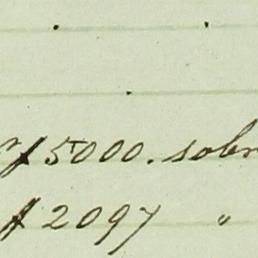 $5000. sobr
$2097 "